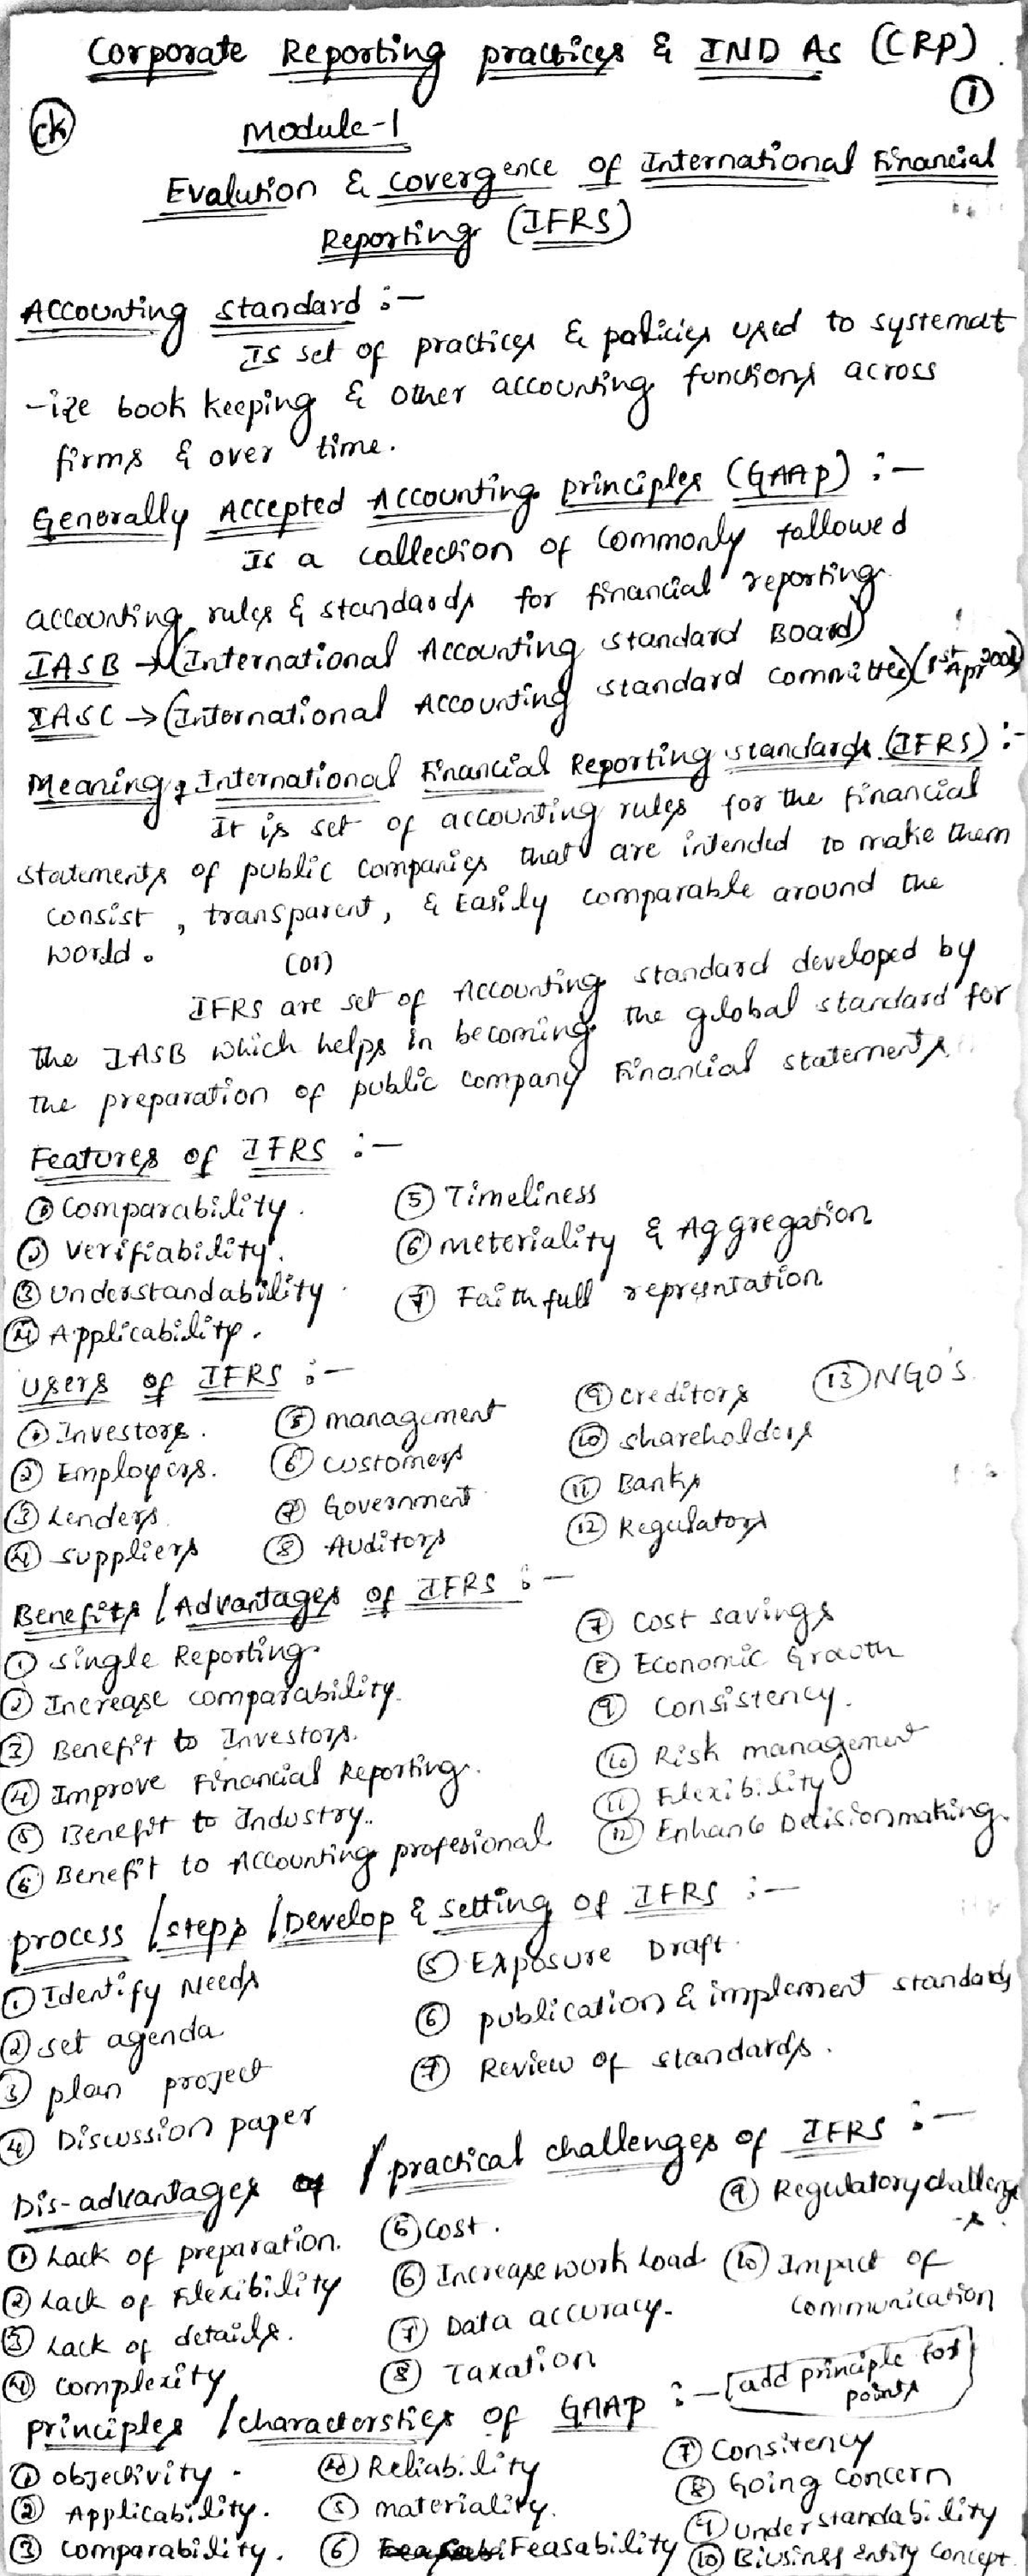 Corporate Reporting practices & IND As (CRP)
①
CK
Module-1
Evalution & covergence of International Financial
Reporting (IFRS)
Accounting standard :-
Is set of practices & policies used to systemat
-ize book keeping & other accounting functions across
firms & over time.
Generally Accepted Accounting principles (GAAP) :-
Is a collection of commonly followed
accounting rules & standards for financial reporting.
IASB → (International Accounting standard Board)
IASC → (International Accounting standard committee) (1st Apr 2001)
Meaning, International Financial Reporting standards (IFRS) :-
It is set of accounting rules for the financial
statements of public companies that are intended to make them
consist, transparent, & Easily comparable around the
world.
(or)
IFRS are set of Accounting standard developed by
the IASB which helps in becoming the global standard for
the preparation of public company Financial statements
Features of IFRS :-
① Comparability. ⑤ Timeliness
② Verifiability. ⑥ meteriality & Aggregation
③ Understandability. ⑦ Faithfull represntation
④ Applicability.
Users of IFRS :-
① Investors. ⑤ management ⑨ creditors ⑬ NGO's
② Employers. ⑥ customers ⑩ shareholders
③ Lenders ⑦ Government ⑪ Banks
④ suppliers ⑧ Auditors ⑫ Regulators
Benefits / Advantages of IFRS :-
① single Reporting ⑦ cost savings
② Increase comparability ⑧ Economic Graoth
③ Benefit to Investors. ⑨ consistency.
④ Improve Financial Reporting. ⑩ Risk management
⑤ Benefit to Industry.. ⑪ Flexibility
⑥ Benefit to Accounting profesional ⑫ Enhance Decisionmaking.
process / steps / Develop & setting of IFRS :-
① Identify Needs ⑤ Exposure Draft
② set agenda ⑥ publication & implement standards
③ plan project ⑦ Review of standards.
④ Discussion paper
Dis-advantages / practical challenges of IFRS :-
① Lack of preparation. ⑤ cost. ⑨ Regulatory challenge
-s.
② Lack of Flexibility ⑥ Increase work Load ⑩ Impact of
communication
③ Lack of details. ⑦ Data accuracy.
④ complexity ⑧ Taxation
principles / characterstics of GAAP :- [add principle for
points]
① objectivity. ④ Reliability ⑦ Consitency
② Applicability. ⑤ materiality. ⑧ Going concern
③ comparability. ⑥ Feasability ⑨ Understandability
⑩ Biusiness Entity Concept.